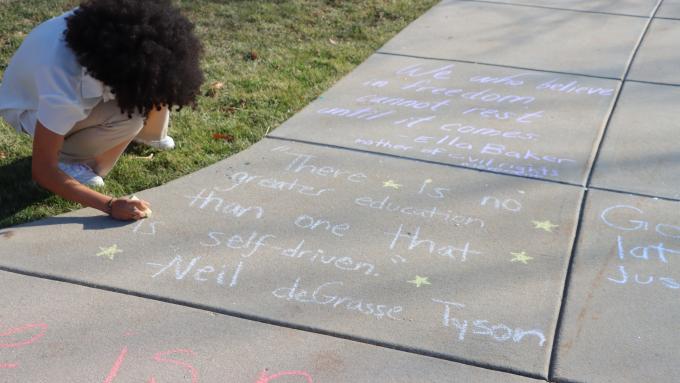 We who believe
in freedom
cannot rest
until it comes
-Ella Baker
mother of civil rights
"There is no
greater education
than one that
is self-driven."
-Neil deGrasse Tyson